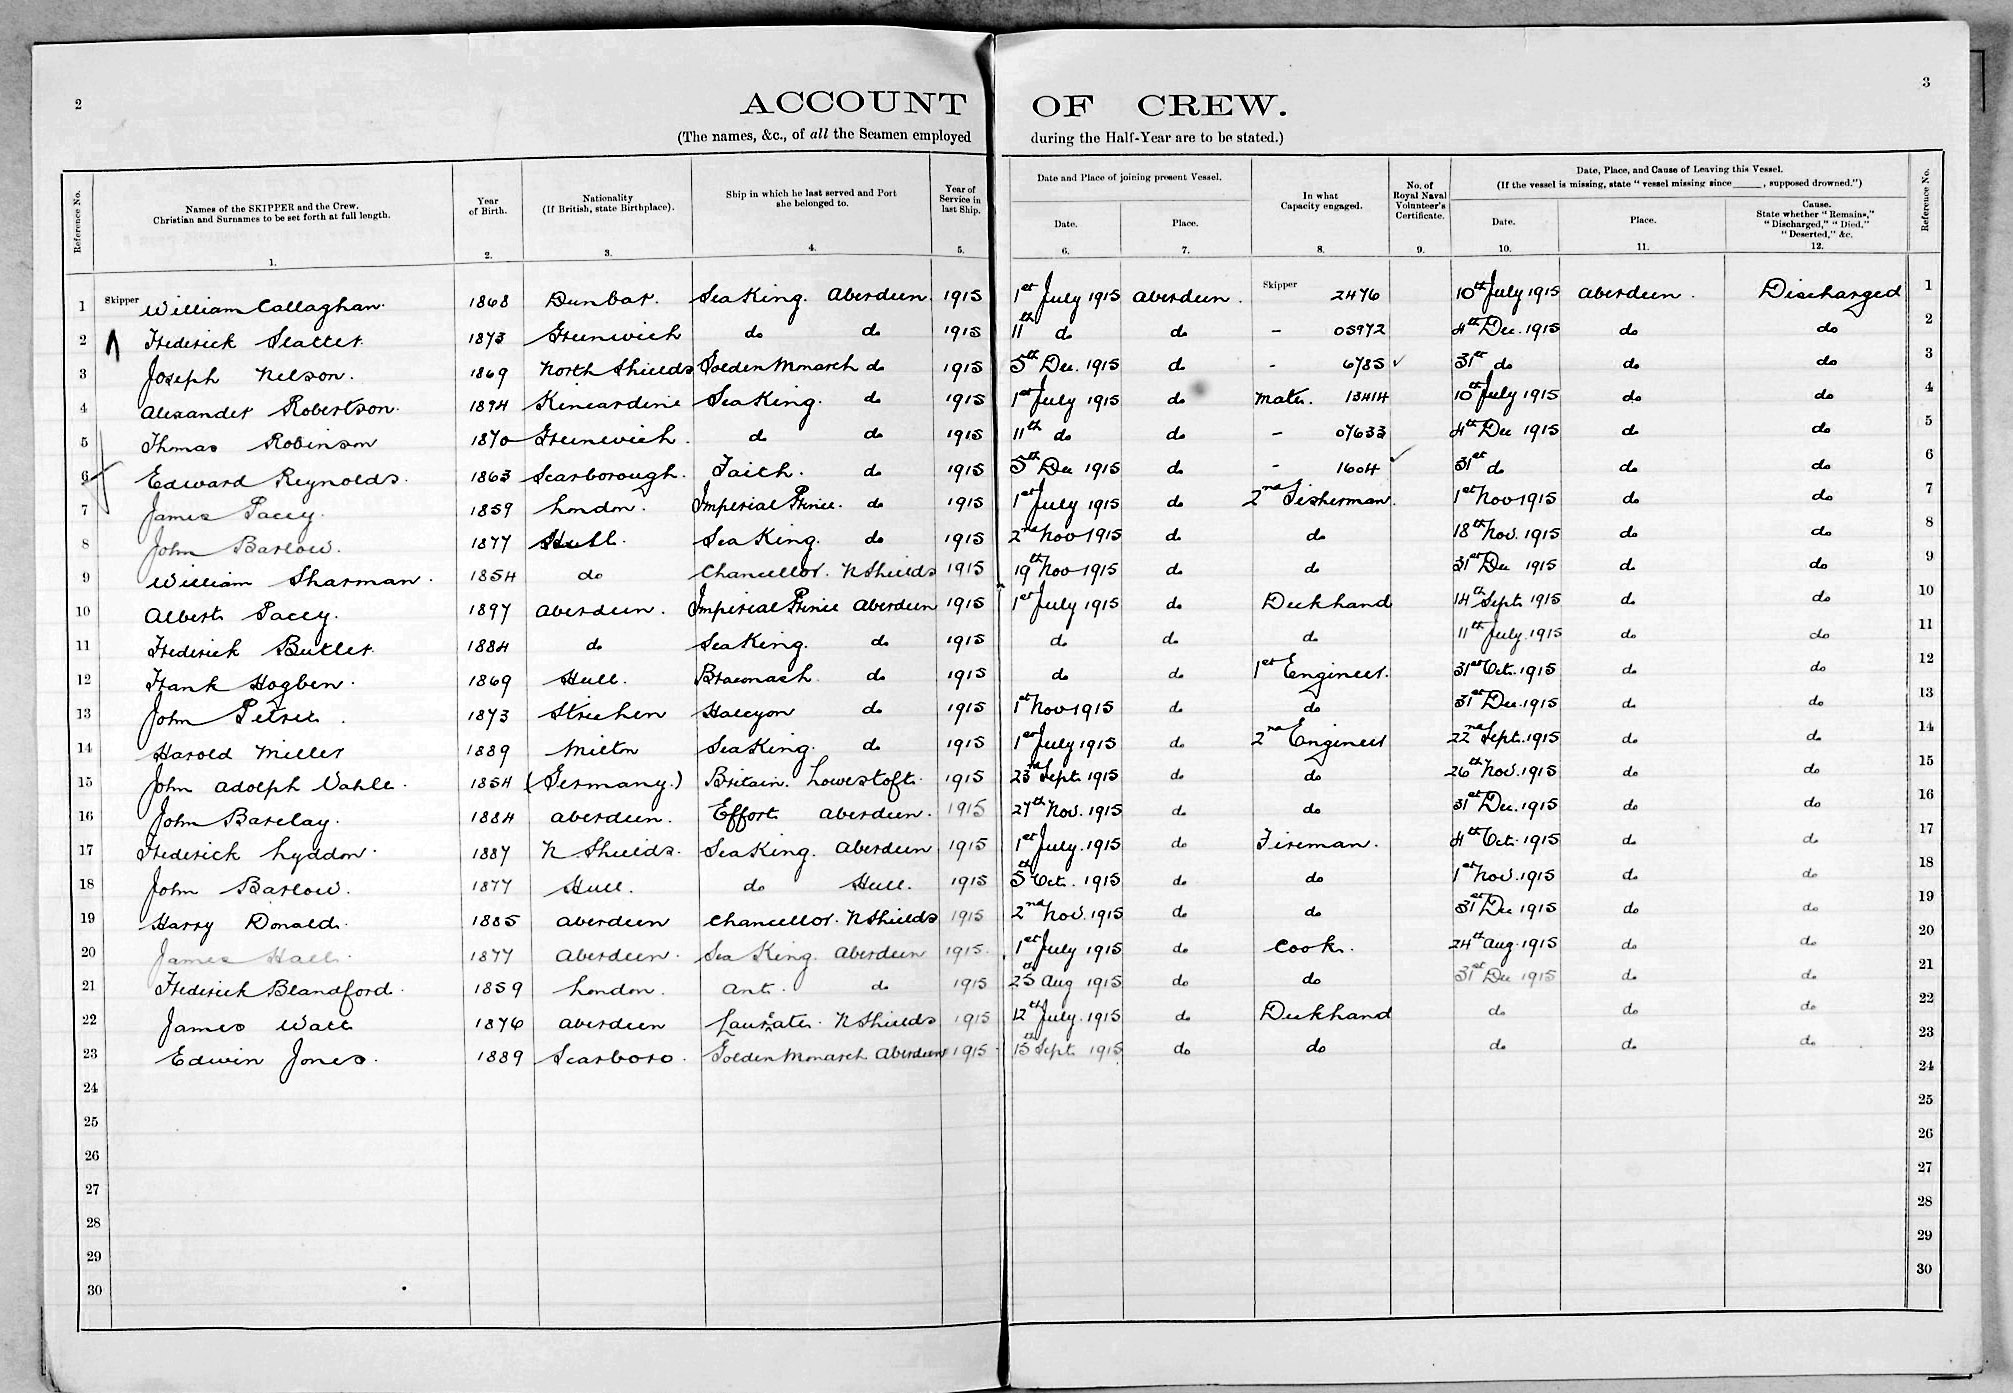 2
ACCOUNT OF CREW.
3
(The names, &c., of all the Seamen employed during the Half-Year are to be stated.)
Reference No.
Names of the SKIPPER and the Crew.
Christian and Surnames to be set forth at full length.
1.
Year of Birth.
2.
Nationality
(If British, state Birthplace).
3.
Ship in which he last served and Port she belonged to.
4.
Year of Service in last Ship.
5.
Date and Place of joining present Vessel.
Date.
6.
Place.
7.
In what Capacity engaged.
8.
No. of Royal Naval Volunteer's Certificate.
9.
Date, Place, and Cause of Leaving this Vessel.
(If the vessel is missing, state "vessel missing since_____, supposed drowned.")
Date.
10.
Place.
11.
Cause.
State whether "Remains," "Discharged," "Died," "Deserted," &c.
12.
Reference No.
1 Skipper William Callaghan. 1868 Dunbar. Sea King. Aberdeen 1915 1st July 1915 Aberdeen. Skipper 2476 10th July 1915 Aberdeen. Discharged 1
2 Frederick Slatter 1873 Greenwich do do 1915 11th do do - 05972 4th Dec. 1915 do do 2
3 Joseph Nelson. 1869 North Shields Golden Monarch do 1915 5th Dec. 1915 do - 6785 ✓ 31st do do do 3
4 Alexander Robertson. 1894 Kincardine Sea King. do 1915 1st July 1915 do Mate. 13414 10th July 1915 do do 4
5 Thmas Robinson 1870 Greenwich. do do 1915 11th do do - 07633 4th Dec 1915 do do 5
6 Edward Reynolds. 1863 Scarborough. Faith. do 1915 5th Dec 1915 do - 1604 ✓ 31st do do do 6
7 James Pacey. 1859 London. Imperial Prince. do 1915 1st July 1915 do 2nd Fisherman. 1st Nov 1915 do do 7
8 John Barlow. 1877 Hull. Sea King. do 1915 2nd Nov 1915 do do 18th Nov. 1915 do do 8
9 William Sharman. 1854 do Chancellor. N Shields 1915 19th Nov 1915 do do 31st Dec 1915 do do 9
10 Albert Pacey. 1897 Aberdeen. Imperial Prince Aberdeen 1915 1st July 1915 do Deckhand 14th Sept 1915 do do 10
11 Frederick Butler 1884 do Sea King. do 1915 do do do 11th July. 1915 do do 11
12 Frank Hogben. 1869 Hull. Braconash. do 1915 do do 1st Engineer. 31st Oct. 1915 do do 12
13 John Petrie. 1873 Strichen Halcyon do 1915 1st Nov 1915 do do 31st Dec. 1915 do do 13
14 Harold Miller 1889 Milton Sea King. do 1915 1st July 1915 do 2nd Engineer 22nd Sept. 1915 do do 14
15 John Adolph Vahle. 1854 (Germany.) Britain. Lowestoft. 1915 23rd Sept 1915 do do 26th Nov. 1915 do do 15
16 John Barclay. 1884 Aberdeen. Effort Aberdeen. 1915 27th Nov. 1915 do do 31st Dec. 1915 do do 16
17 Frederick Lyddon. 1887 N Shields. Sea King. Aberdeen 1915 1st July. 1915 do Fireman. 4th Oct. 1915 do do 17
18 John Barlow. 1877 Hull. do Hull. 1915 5th Oct. 1915 do do 1st Nov. 1915 do do 18
19 Harry Donald. 1885 Aberdeen Chancellor. N Shields 1915 2nd Nov. 1915 do do 31st Dec 1915 do do 19
20 James Hall. 1877 Aberdeen. Sea King. Aberdeen 1915. 1st July 1915 do Cook. 24th Aug. 1915 do do 20
21 Frederick Blandford. 1859 London. Ant. do 1915 25th Aug 1915 do do 31st Dec 1915 do do 21
22 James Watt 1876 Aberdeen Laureate. N Shields 1915 12th July. 1915 do Deckhand do do do 22
23 Edwin Jones. 1889 Scarboro. Golden Monarch Aberdeen 1915. 15th Sept 1915 do do do do do 23
24 24
25 25
26 26
27 27
28 28
29 29
30 30